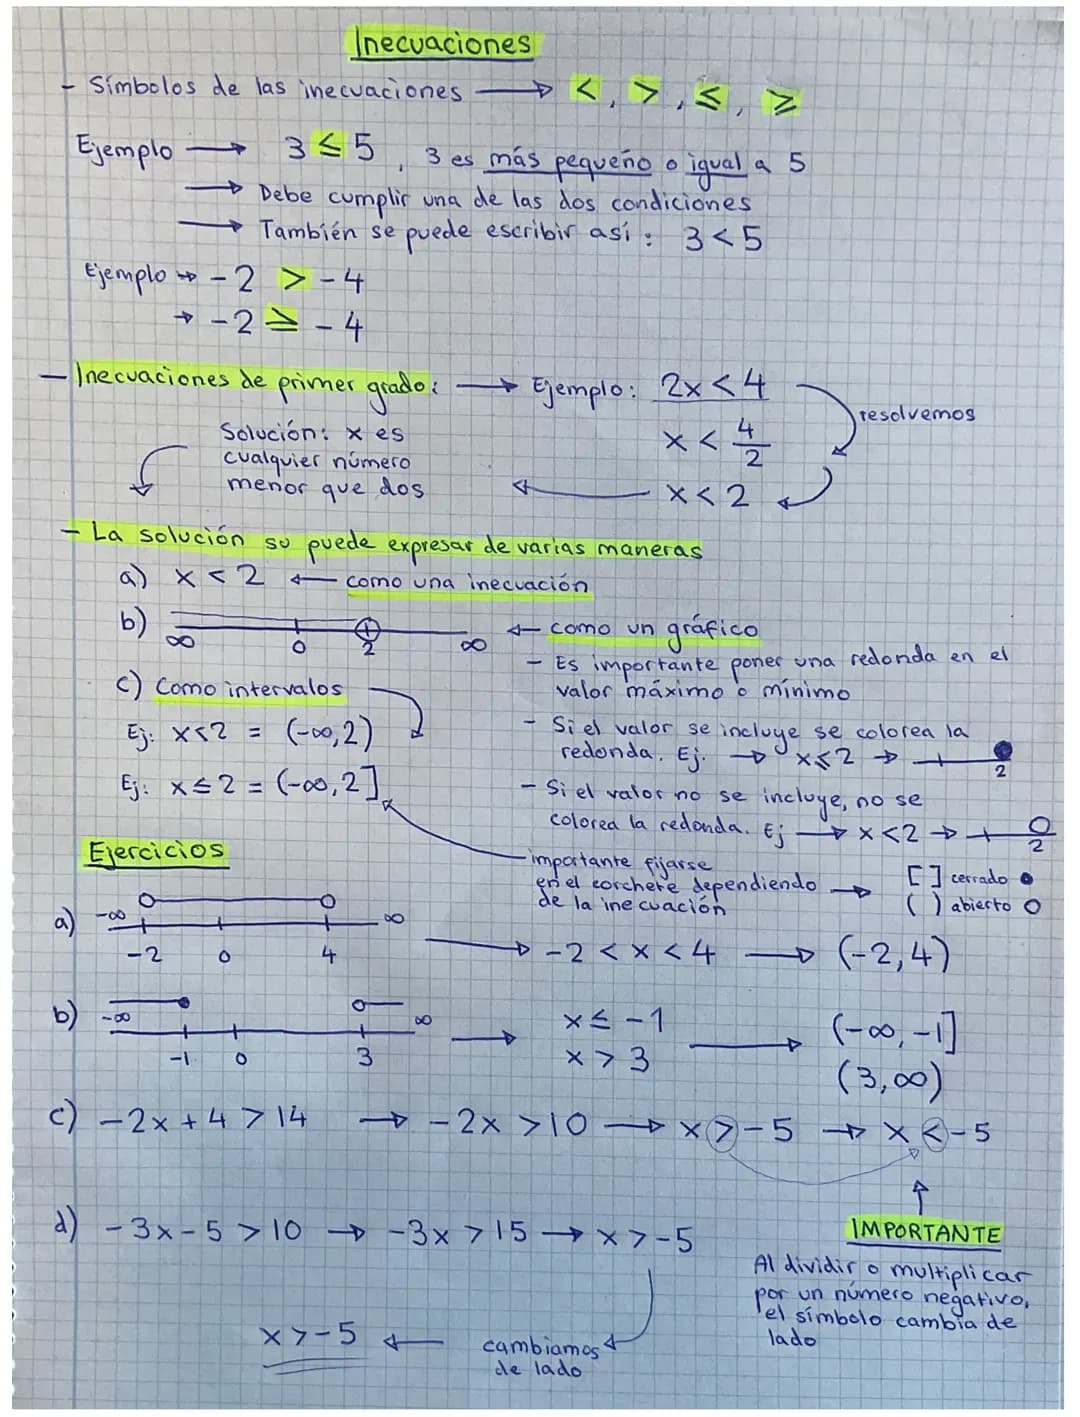 Inecuaciones
- Símbolos de las inecuaciones → <, >, ≤, ≥
Ejemplo → 3 ≤ 5, 3 es más pequeño o igual a 5
→ Debe cumplir una de las dos condiciones
→ También se puede escribir así: 3 < 5
Ejemplo → -2 > -4
→ -2 ≥ -4
- Inecuaciones de primer grado: → Ejemplo: 2x < 4
resolvemos
x < 4/2
x < 2
Solución: x es
cualquier número
menor que dos
- La solución su puede expresar de varias maneras
a) x < 2 ← como una inecuación
b) ∞ 0 2 ∞ ← como un gráfico
- Es importante poner una redonda en el
valor máximo o mínimo
- Si el valor se incluye se colorea la
redonda. Ej. → x ≤ 2 → 2
- Si el valor no se incluye, no se
colorea la redonda. Ej → x < 2 → 2
c) Como intervalos
Ej: x < 2 = (-∞, 2)
Ej: x ≤ 2 = (-∞, 2]
importante fijarse
en el corchete dependiendo →
de la inecuación
[ ] cerrado
( ) abierto
Ejercicios
a) -∞ -2 0 4 ∞ → -2 < x < 4 → (-2, 4)
b) -∞ -1 0 3 ∞ → x ≤ -1 → (-∞, -1]
x > 3 (3, ∞)
c) -2x + 4 > 14 → -2x > 10 → x > -5 → x < -5
IMPORTANTE
Al dividir o multiplicar
por un número negativo,
el símbolo cambia de
lado
d) -3x - 5 > 10 → -3x > 15 → x > -5
cambiamos
de lado
x > -5 ←